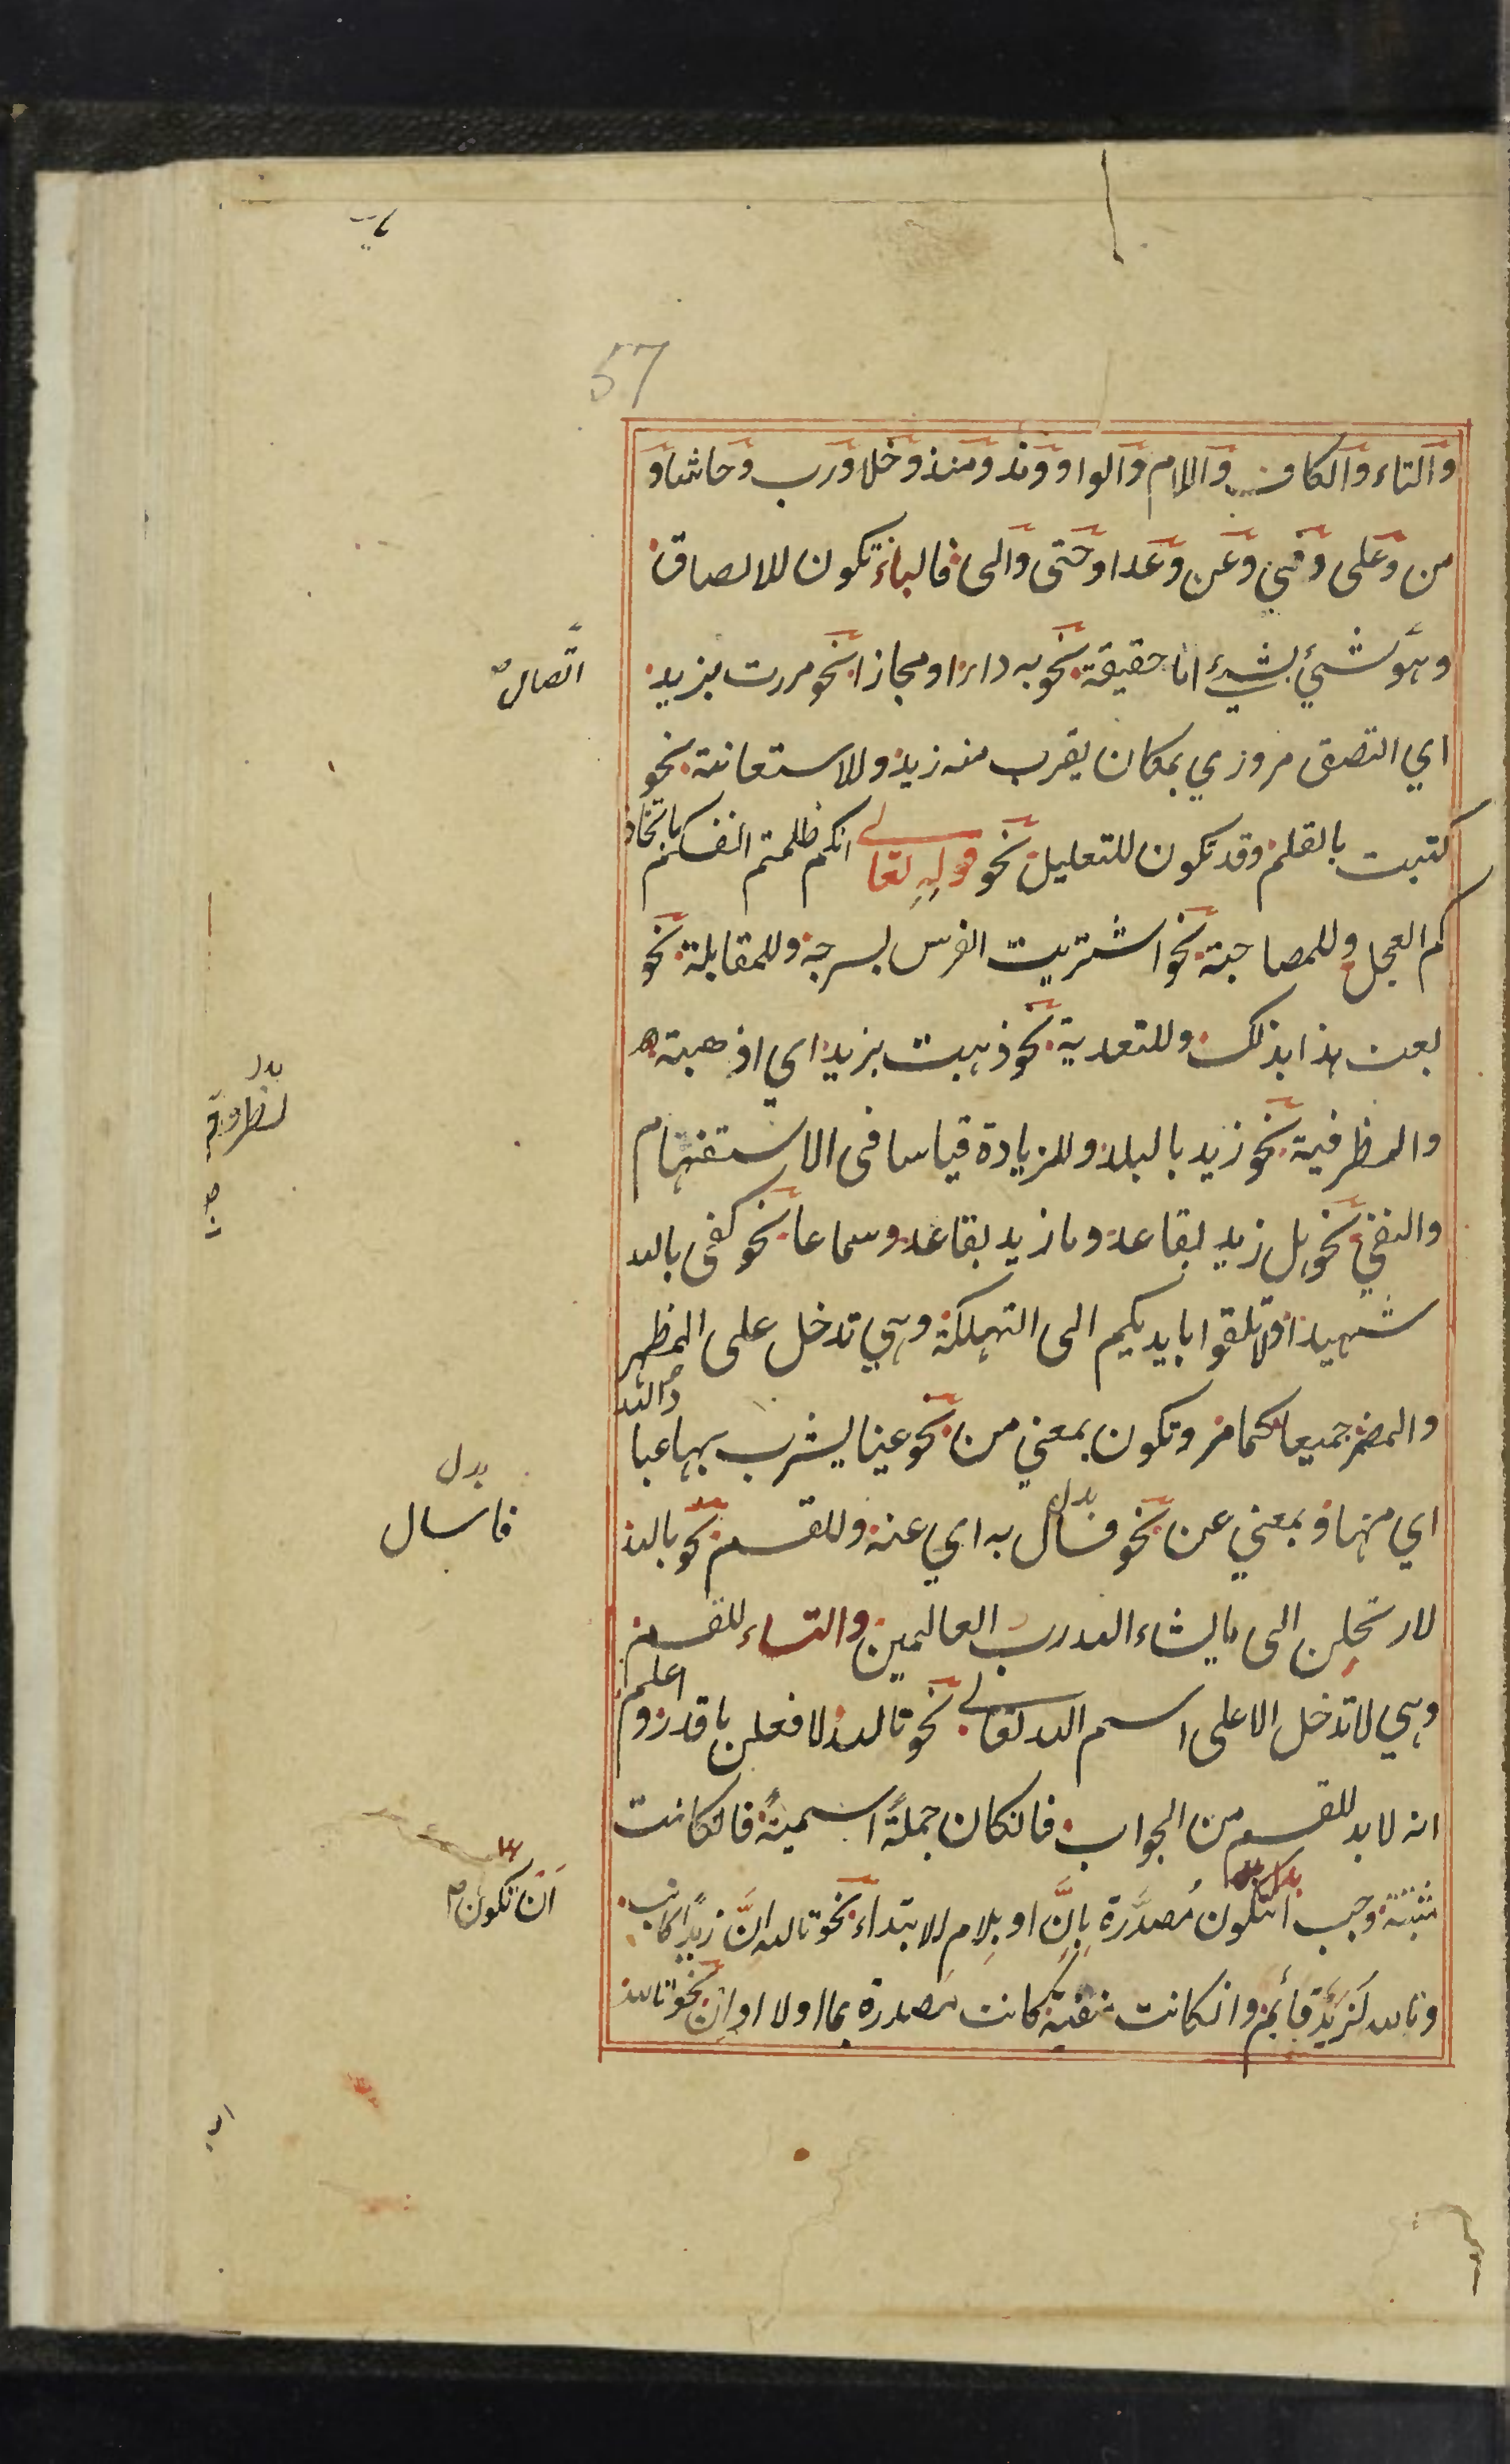 57
والتاء والكاف واللام والواو ومذ ومنذ وخلا ورب وحاشا و
من وعلى وفي وعن وعدا وحتى والى فالباء تكون للالصاق
وهو شيئ بشيئ اما حقيقة نحو به داء او مجازا نحو مررت بزيد
اتصال
اي التصق مروري بمكان يقرب منه زيد وللاستعانة نحو
كتبت بالقلم وقد تكون للتعليل نحو قوله تعالى انكم ظلمتم انفسكم باتخاذ
كم العجل وللمصاحبة نحو اشتريت الفرس بسرجه وللمقابلة نحو
بعت هذا بذلك وللتعدية نحو ذهبت بزيد اي اذهبته
والظرفية نحو زيد بالبلد وللزيادة قياسا فى الاستفهام
والنفي نحو هل زيد بقاعد وما زيد بقاعد وسماعا نحو كفى بالله
شهيدا ولا تلقوا بايديكم الى التهلكة وهي تدخل على المظهر
والمضمر جميعا كما مر وتكون بمعني من نحو عينا يشرب بها عباد الله
اي منها وبمعني عن نحو فسال به اي عنه وللقسم نحو بالله
بدل
فاسال
لارتحلن الى ما يشاء الله رب العالمين والتاء للقسم
وهي لا تدخل الا على اسم الله تعالى نحو تالله لافعلن باقدر واعلم
انه لا بد للقسم من الجواب فانكان جملة اسمية فانكانت
مثبتة وجب انتكون مصدرة بان او بلام الابتداء نحو تالله ان زيدا كاتب
ان تكون
وتالله لزيد قائم وانكانت منفية كانت مصدرة بما او لا او ان نحو تالله